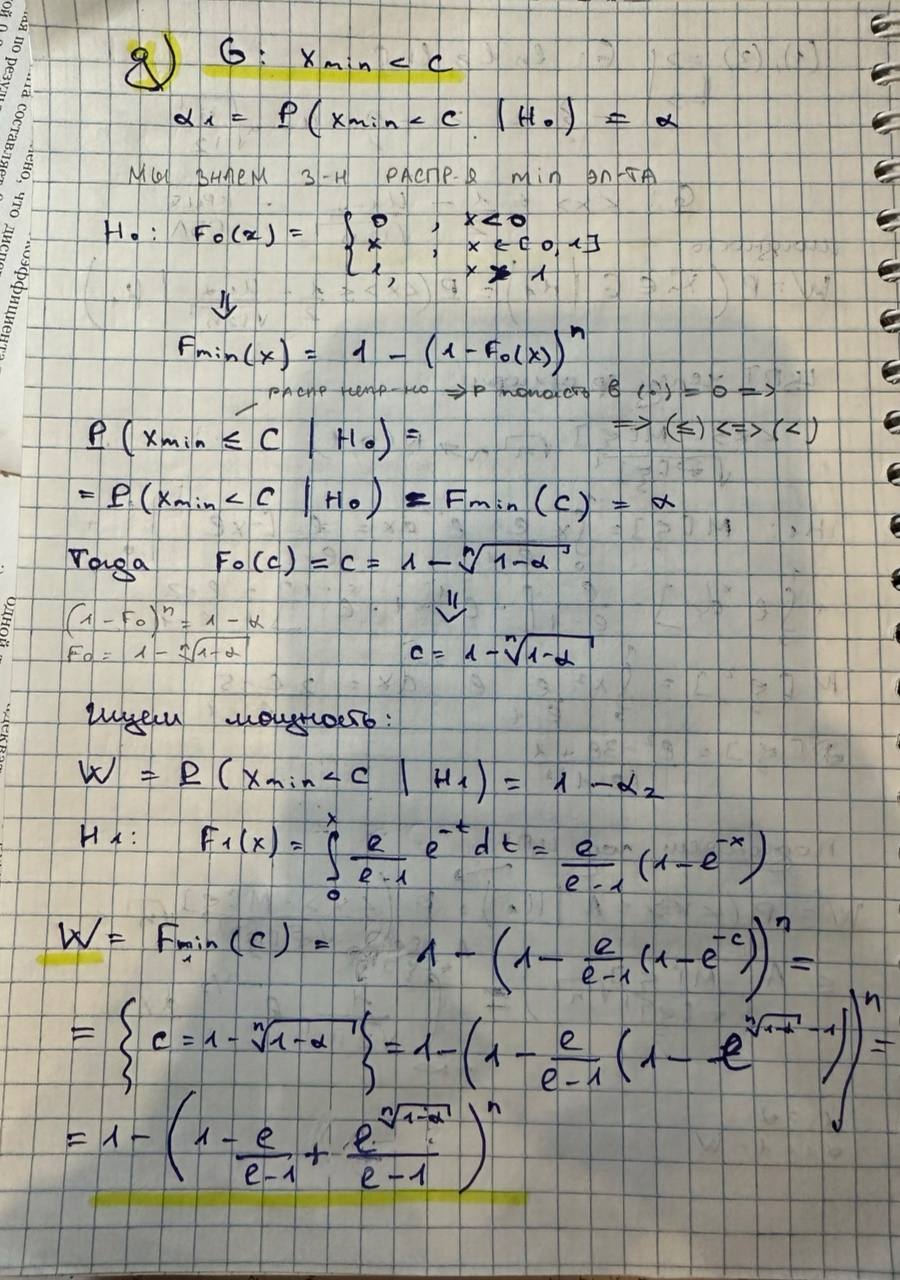 д) G: xmin < c
α₁ = P(xmin < c | H₀) = α
МЫ ЗНАЕМ З-Н РАСПР-Я min ЭЛ-ТА
H₀: F₀(x) = { 0 , x < 0
x , x ∈ [0, 1]
1, x > 1
⇓
Fmin(x) = 1 − (1 − F₀(x))ⁿ
РАСПР НЕПР-НО ⇒ P попасть в (·) = 0 =>
=> (≤) <=> (<)
P(xmin ≤ c | H₀) =
= P(xmin < c | H₀) = Fmin(c) = α
Тогда F₀(c) = c = 1 − ⁿ√(1−α)
⇓
(1 − F₀)ⁿ = 1 − α
F₀ = 1 − ⁿ√(1−α) c = 1 − ⁿ√(1−α)
Ищем мощность:
W = P(xmin < c | H₁) = 1 − α₂
H₁: F₁(x) = ∫₀ˣ e/(e−1) e^(−t) dt = e/(e−1) (1 − e^(−x))
W = Fmin₁(c) = 1 − (1 − e/(e−1) (1 − e^(−c)))ⁿ =
= { c = 1 − ⁿ√(1−α) } = 1 − (1 − e/(e−1) (1 − e^(ⁿ√(1−α) − 1)))ⁿ =
= 1 − (1 − e/(e−1) + e^(ⁿ√(1−α))/(e−1))ⁿ